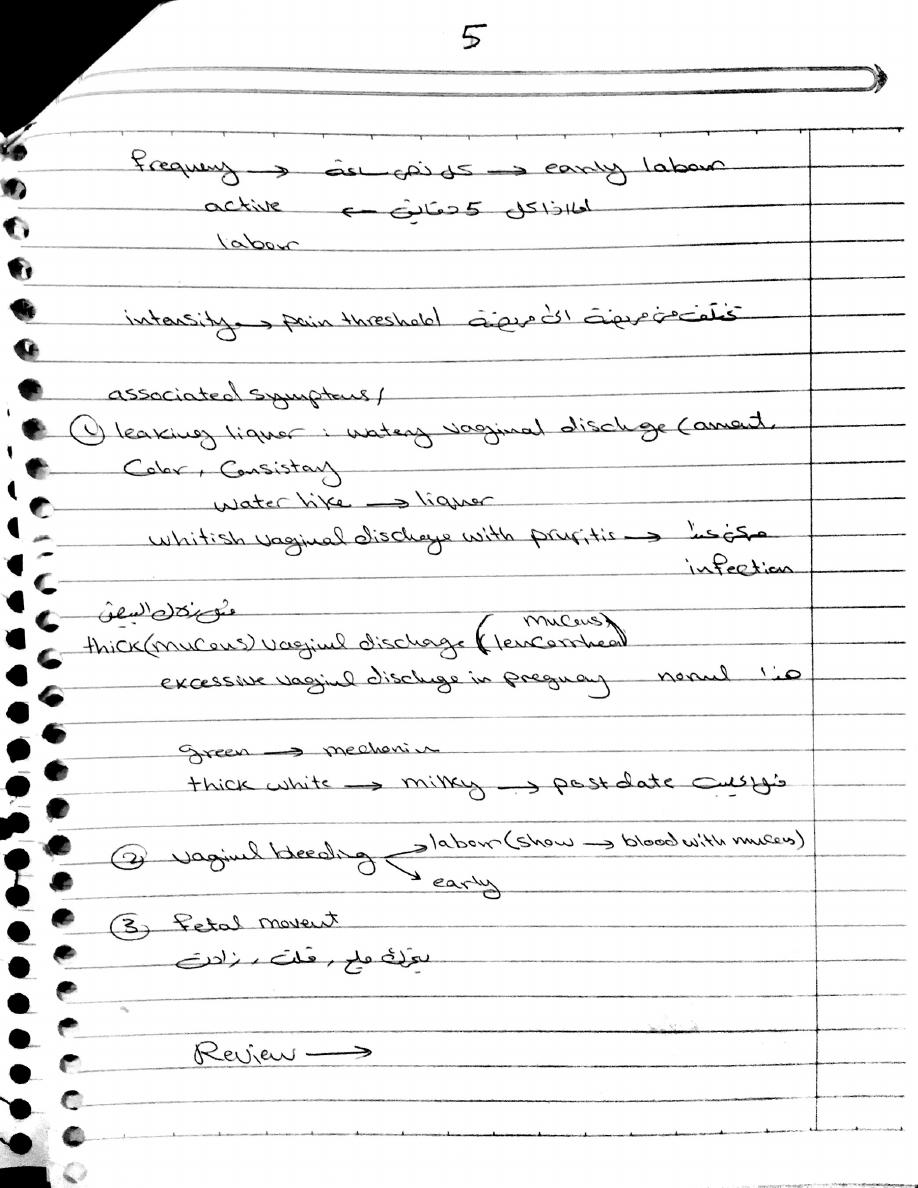 5
frequeny → كل نص ساعة → early labour
active ← اما اذا كل 5 دقايق
labour
intensity → pain threshold تختلف من مريضة الى مريضة
associated symptoms/
① leaking liquor : watery vaginal dischge (amount,
Color, Consistay
water like → liquor
whitish vaginal dischage with pruritis →
infection
thick (mucous) vaginal discharge (mucous) leucorrhea)
excessive vaginal dischage in pregnay normal هذا
green → mechonium
thick white → milky → postdate
② vaginal bleeding → labour (show → blood with mucous)
↘ early
③ Fetal movent
يتحرك مليح, قلت, زادت
Review →